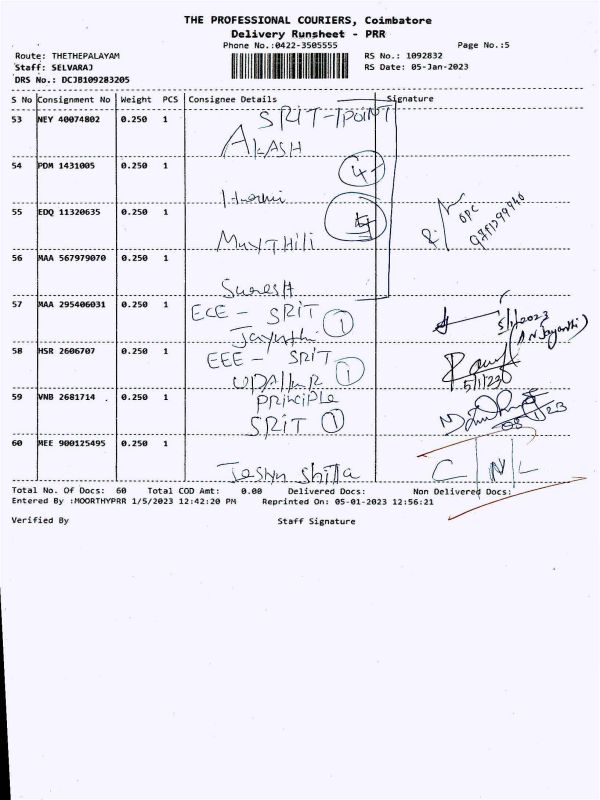 THE PROFESSIONAL COURIERS, Coimbatore
Delivery Runsheet - PRR
Phone No.:0422-3505555 Page No.:5
Route: THETHEPALAYAM RS No.: 1092832
Staff: SELVARAJ RS Date: 05-Jan-2023
DRS No.: DCJB109283205
S No Consignment No Weight PCS Consignee Details Signature
53 NEY 40074802 0.250 1 SRIT-1POINT
AKASH
54 PDM 1431005 0.250 1 4
55 EDQ 11320635 0.250 1
MAYTHILI
56 MAA 567979070 0.250 1
Suresh
57 MAA 295406031 0.250 1 ECE - SRIT 1 5/1/2023
Jayanthi (A.N Jayanthi)
58 HSR 2606707 0.250 1 EEE - SRIT 1
5/1/23
59 VNB 2681714 . 0.250 1 PRINCIPLE
SRIT 1
60 MEE 900125495 0.250 1 C N L
Total No. Of Docs: 60 Total COD Amt: 0.00 Delivered Docs: Non Delivered Docs:
Entered By :MOORTHYPRR 1/5/2023 12:42:20 PM Reprinted On: 05-01-2023 12:56:21
Verified By Staff Signature